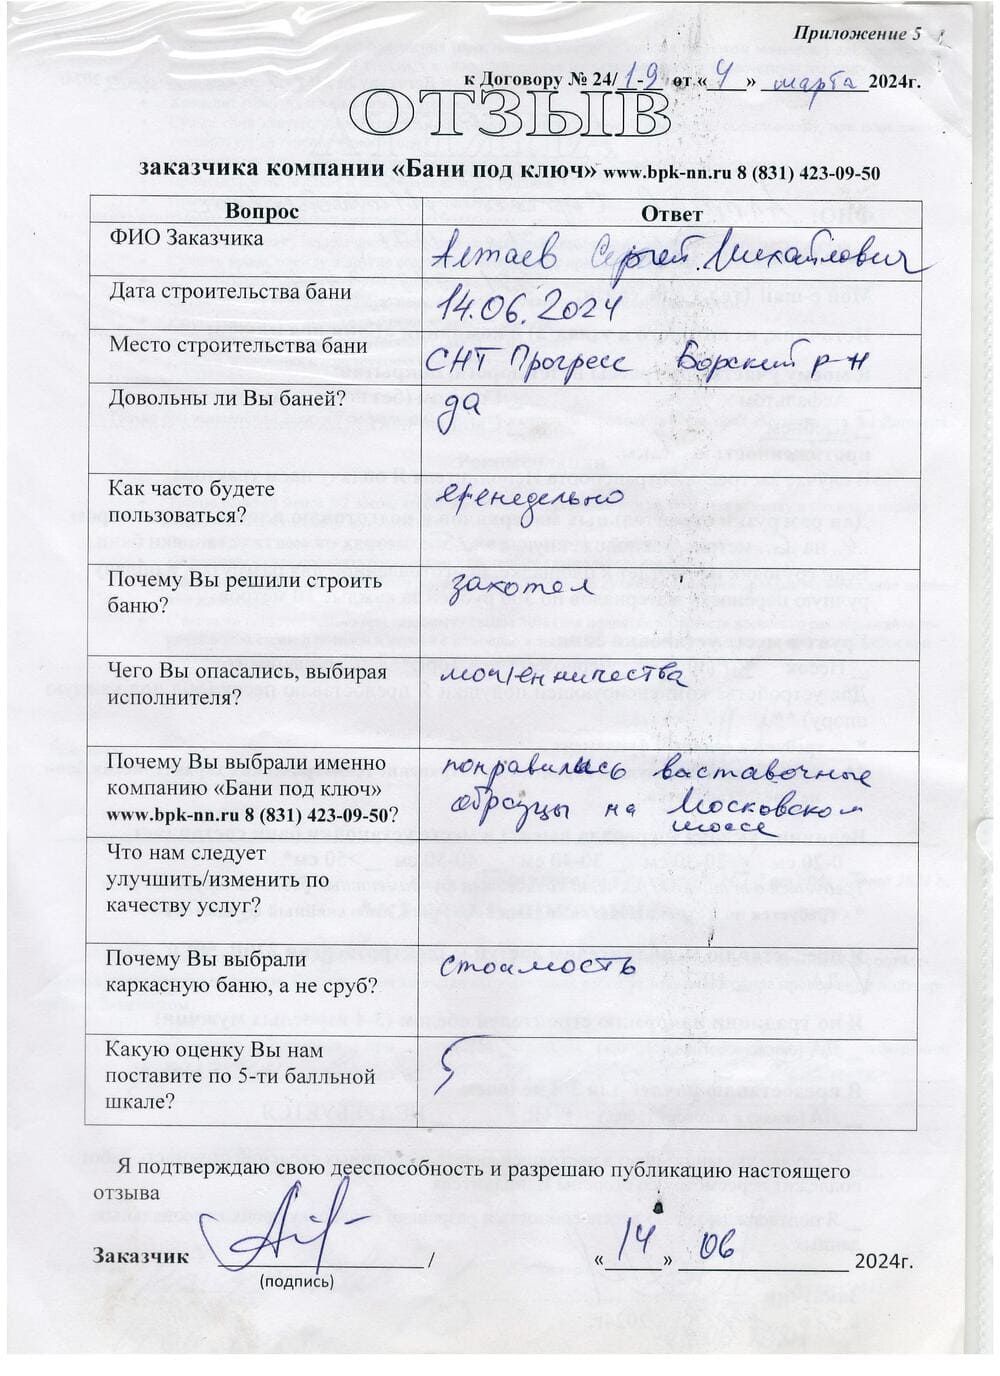 Приложение 5
к Договору № 24/ 1-9 от « 4 » марта 2024г.
ОТЗЫВ
заказчика компании «Бани под ключ» www.bpk-nn.ru 8 (831) 423-09-50
Вопрос Ответ
ФИО Заказчика Алтаев Сергей Михайлович
Дата строительства бани 14.06.2024
Место строительства бани СНТ Прогресс Борский р-н
Довольны ли Вы баней? да
Как часто будете еженедельно
пользоваться?
Почему Вы решили строить захотел
баню?
Чего Вы опасались, выбирая мошенничества
исполнителя?
Почему Вы выбрали именно понравились выставочные
компанию «Бани под ключ» образцы на Московском
www.bpk-nn.ru 8 (831) 423-09-50? шоссе
Что нам следует
улучшить/изменить по
качеству услуг?
Почему Вы выбрали стоимость
каркасную баню, а не сруб?
Какую оценку Вы нам 5
поставите по 5-ти балльной
шкале?
Я подтверждаю свою дееспособность и разрешаю публикацию настоящего
отзыва
Заказчик / « 14 » 06 2024г.
(подпись)